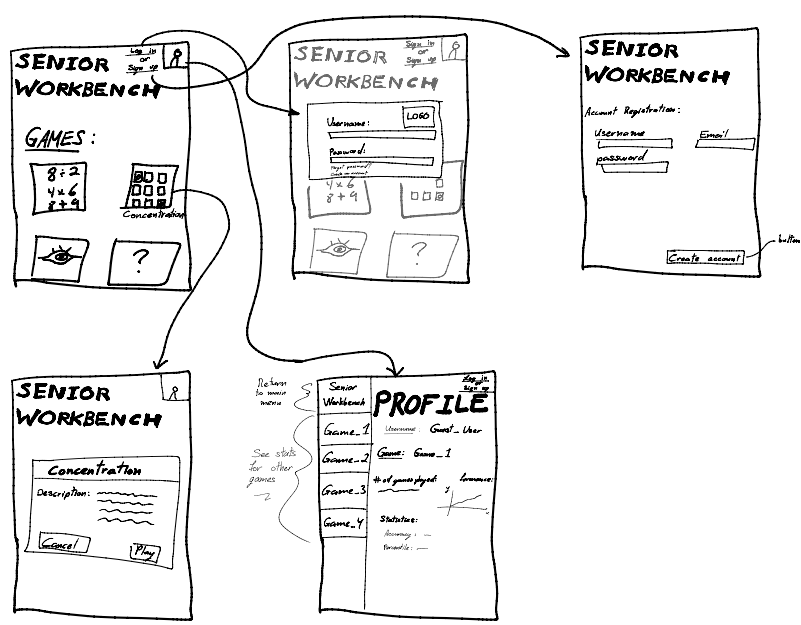 SENIOR
WORKBENCH
Log in
or
Sign up
GAMES:
8÷2
4x6
8+9
Concentration
?
SENIOR
WORKBENCH
Sign in
or
Sign up
Username:
LOGO
Password:
Forgot password?
Create an account
4x6
8+9
?
SENIOR
WORKBENCH
Account Registration:
Username
Email
password
Create account
button
SENIOR
WORKBENCH
Concentration
Description:
Cancel
Play
Return
to main
menu
See stats
for other
games
Senior
Workbench
Game_1
Game_2
Game_3
Game_4
Log in
or
Sign up
PROFILE
Username: Guest_User
Game: Game_1
# of games played:
y
x
Statistics:
Accuracy: —
Percentile: —